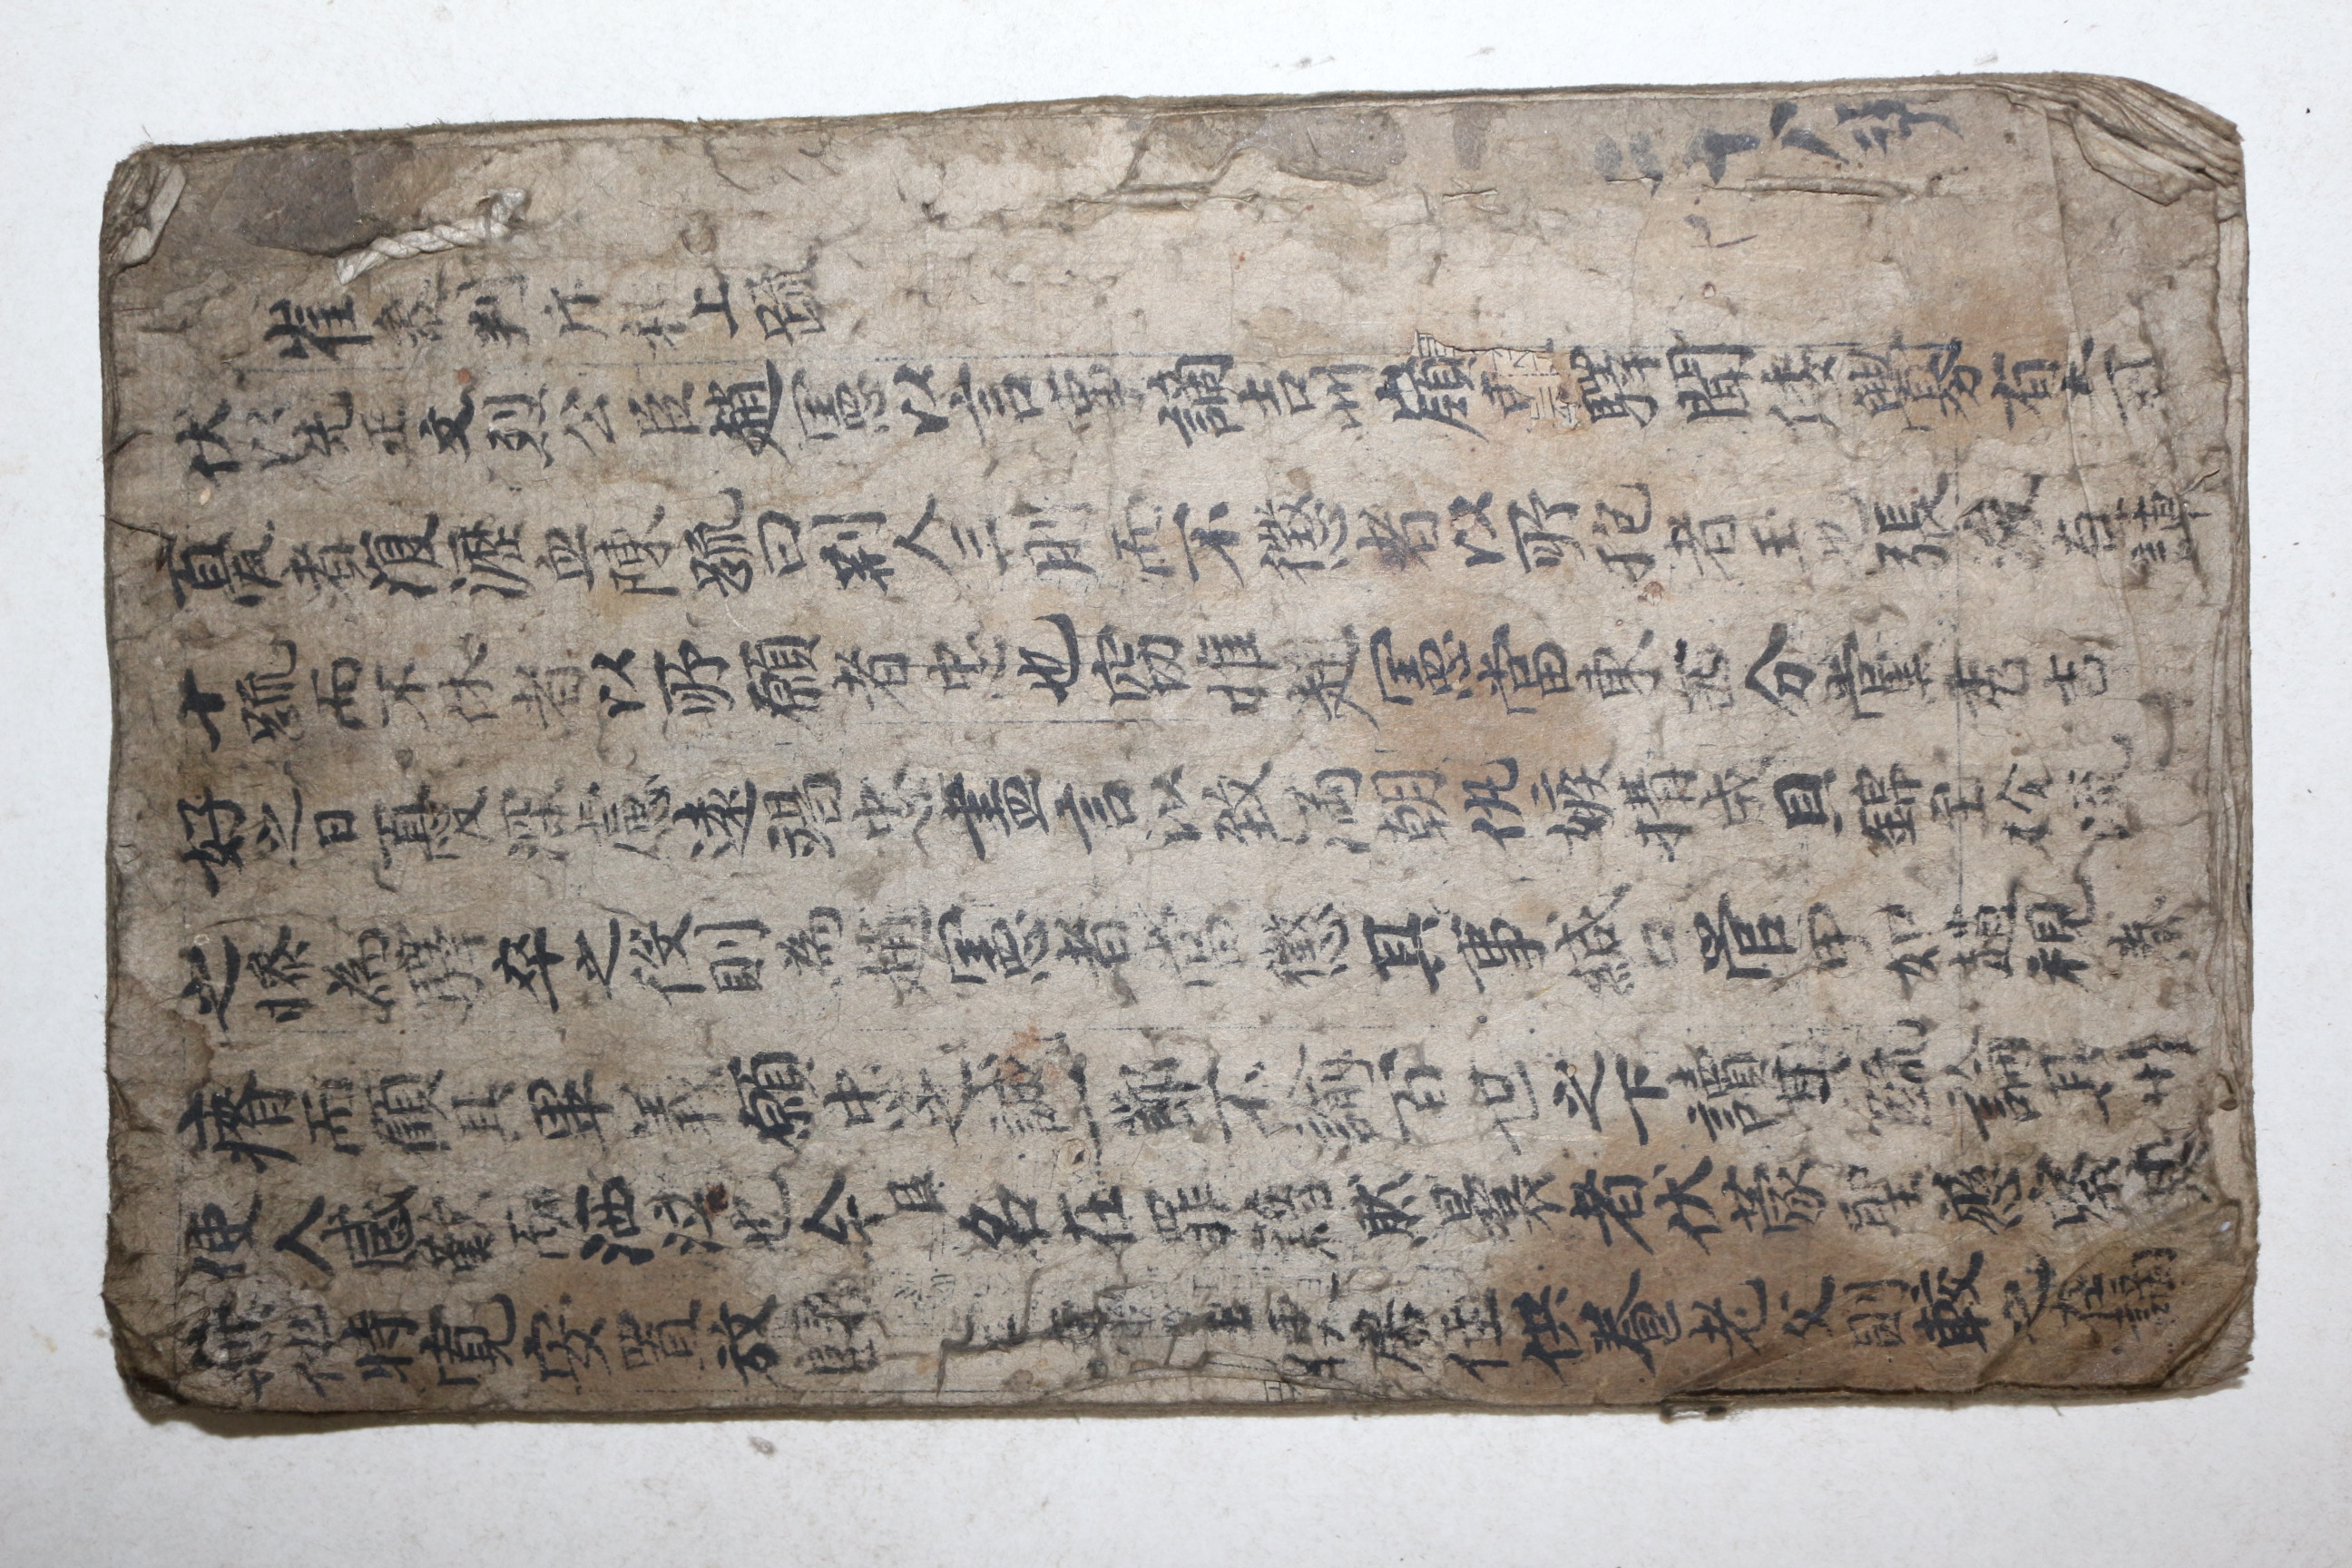 二十八
崔參判斥和上疏
伏以先正文烈公臣趙憲以言事謫吉州嶺東驛聞倭釁有大可
憂者復瀝血陳疏曰荆人三刖而不懲者以所抱者玉也張浚有謫
十疏而不休者以所願者忠也竊惟趙憲當東西分黨書吉
好之日憂深慮遠竭忠盡言以致滿朝仇嫉措成貝錦至於流
之㬠為驛卒之役則為趙憲者當懲其事緘口管甲如趙視秦
瘠而顧其畢義願忠之誠一節不渝百世之下讀其疏論其世
使人感歎而洒涕也今臣名在罪籍然曩者伏蒙聖慈察其
無他特寬安置放歸 便居住供養老父則較之在謫